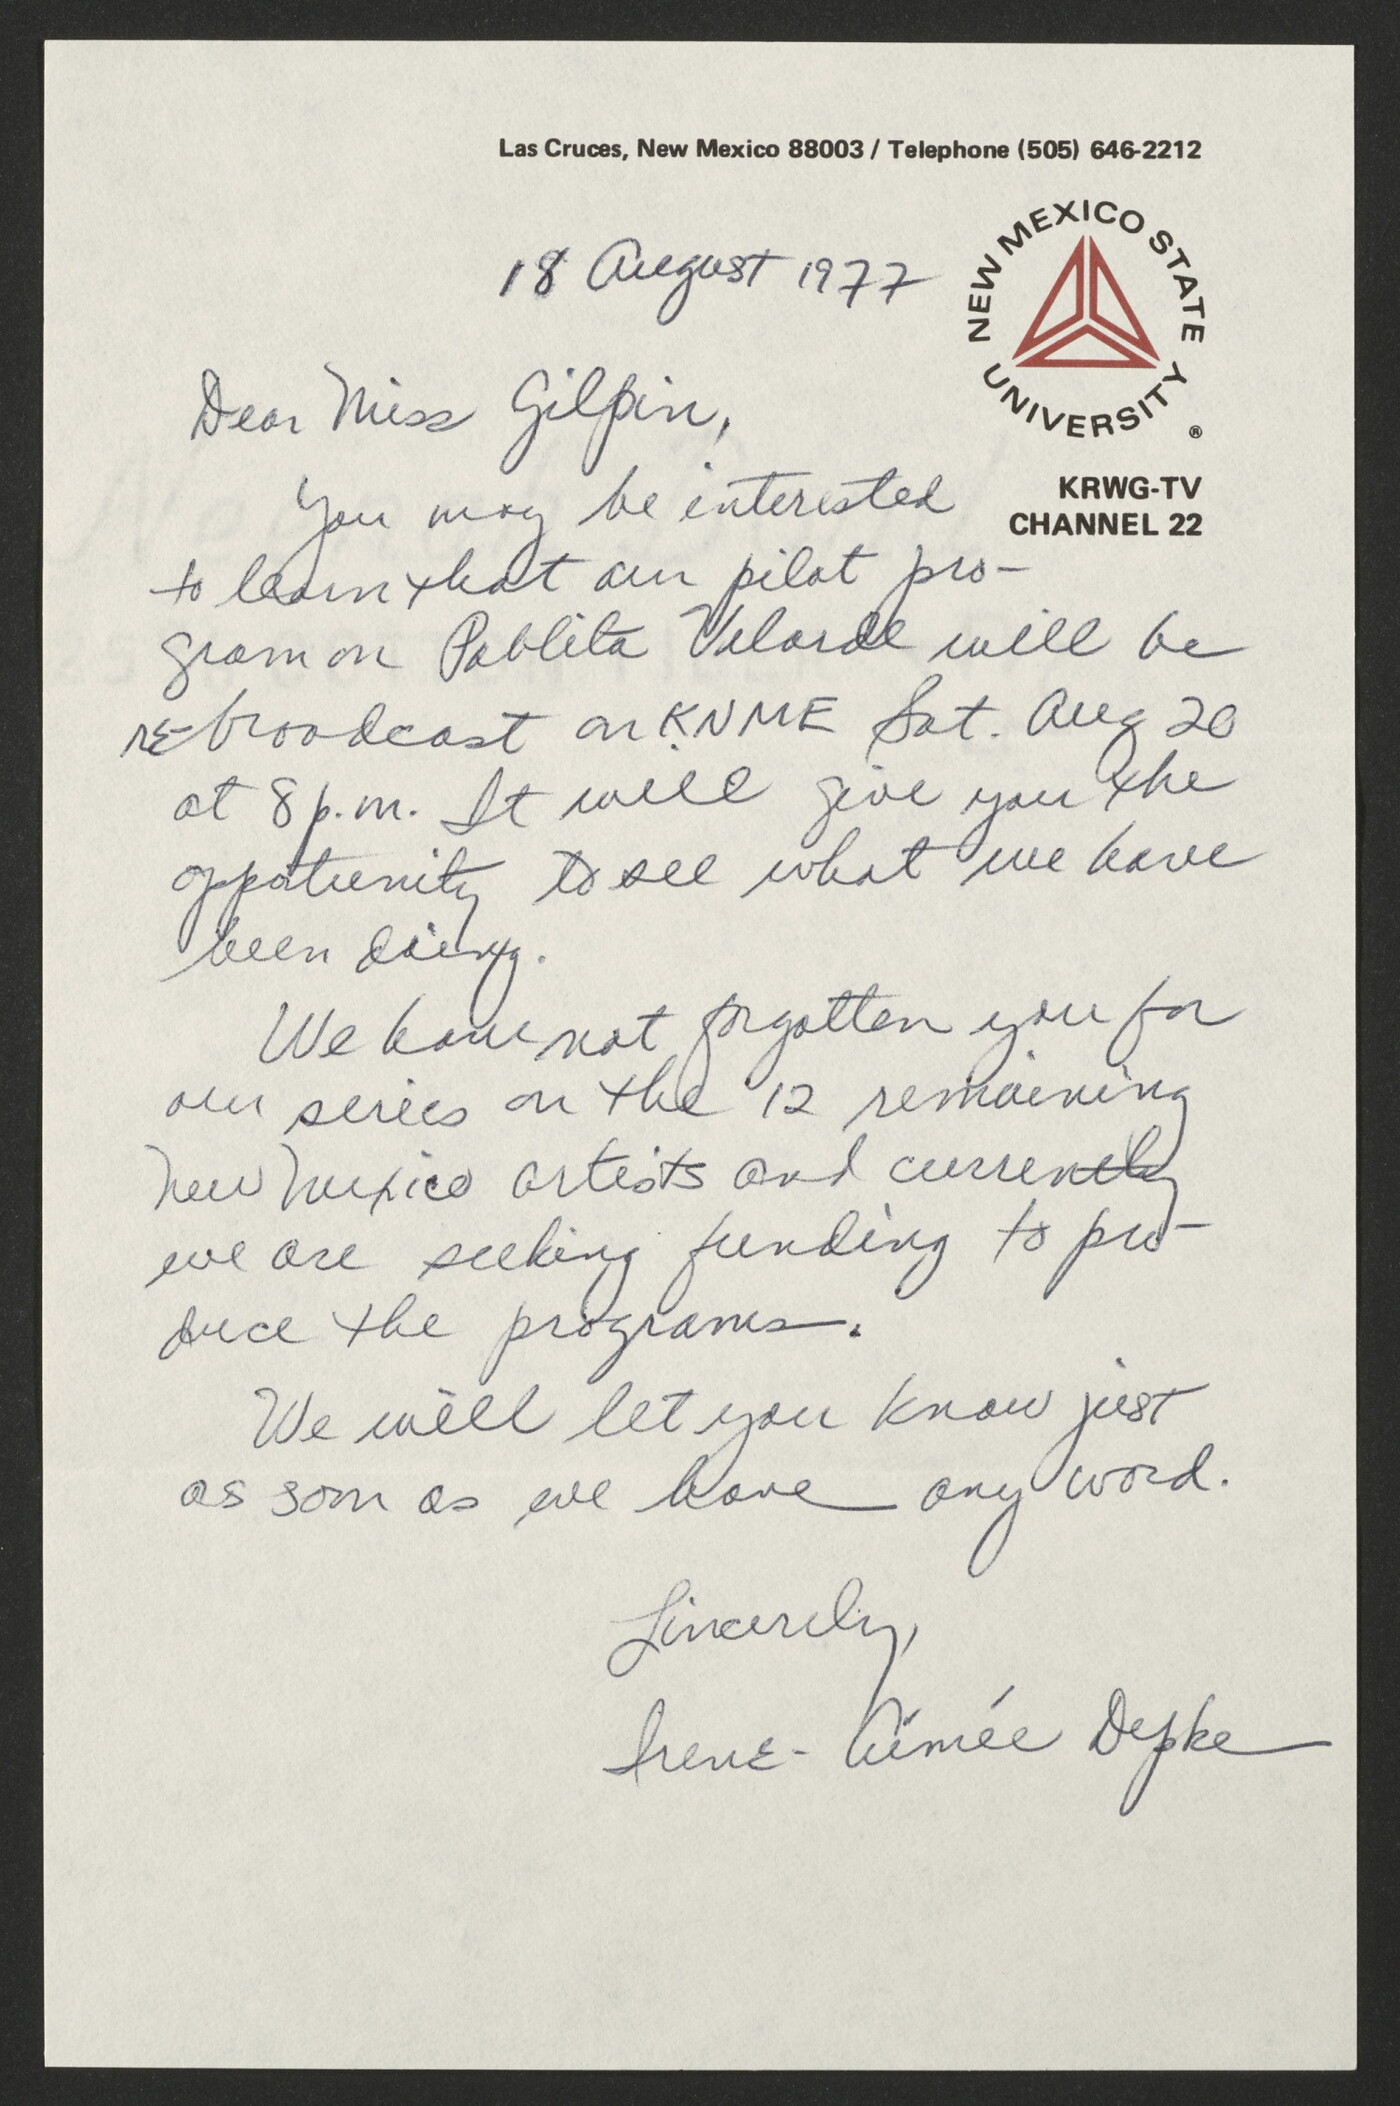 Las Cruces, New Mexico 88003 / Telephone (505) 646-2212
NEW MEXICO STATE UNIVERSITY ®
KRWG-TV
CHANNEL 22
18 August 1977
Dear Miss Gilpin,
You may be interested
to learn that our pilot pro-
gram on Pablita Velarde will be
re-broadcast on KNME Sat. Aug 20
at 8 p.m. It will give you the
oppotunity to see what we have
been doing.
We have not forgotten you for
our series on the 12 remaining
New Mexico artists and currently
we are seeking funding to pro-
duce the programs.
We will let you know just
as soon as we have any word.
Sincerely,
Irene-Aimée Depke